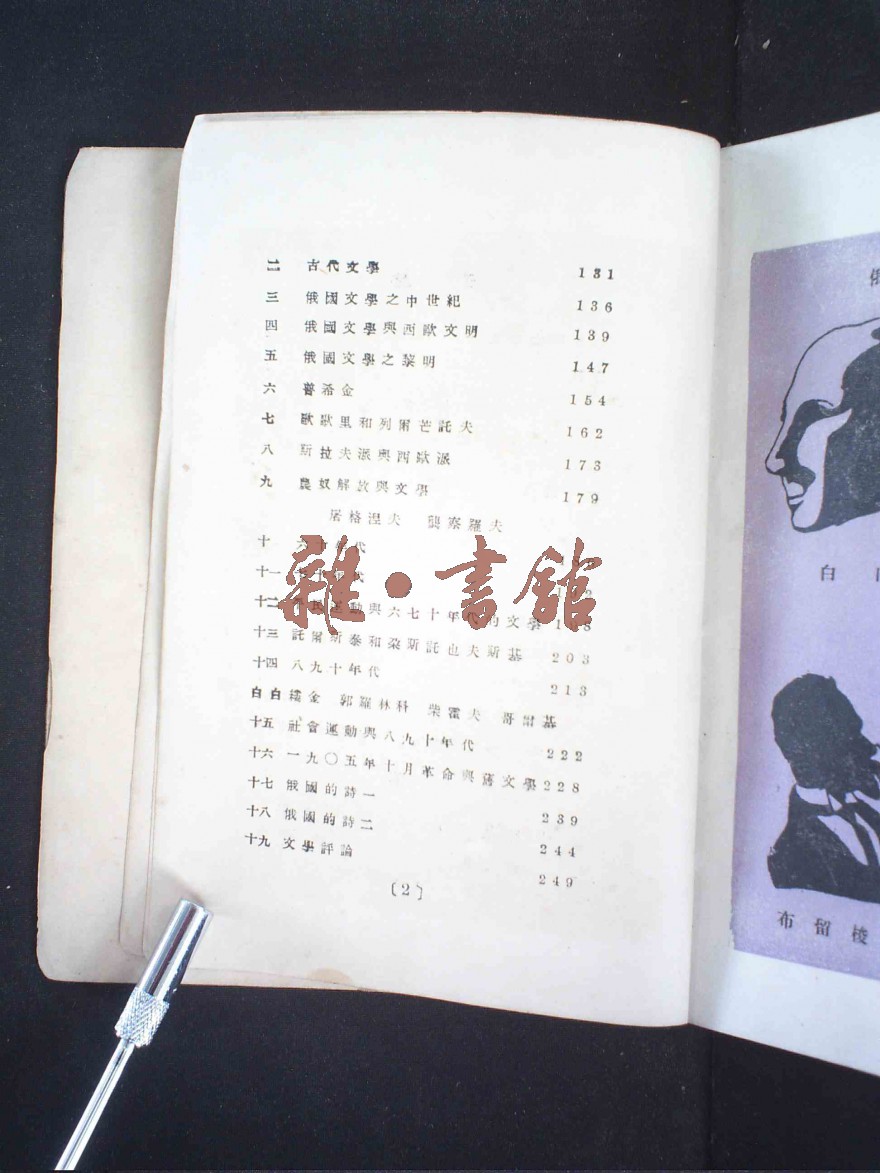 二 古代文學 131
三 俄國文學之中世紀 136
四 俄國文學與西歐文明 139
五 俄國文學之黎明 147
六 普希金 154
七 歐歐里和列爾芒託夫 162
八 斯拉夫派與西歐派 173
九 農奴解放與文學 179
屠格涅夫 龔察羅夫
十 六十年代
十一 七十年代
十二 民運動與六七十年代的文學
十三 託爾斯泰和朶斯託也夫斯基 203
十四 八九十年代 213
白白繆金 郭羅林科 柴霍夫 哥爾基
十五 社會運動與八九十年代 222
十六 一九〇五年十月革命與舊文學 228
十七 俄國的詩一 239
十八 俄國的詩二 244
十九 文學評論 249
〔2〕
雜·書館
俄
白
布留梭